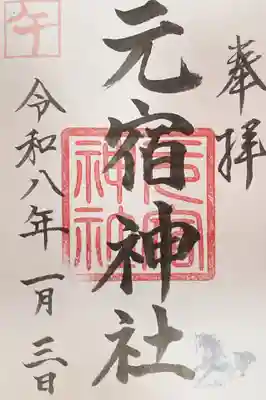 奉拝
元宿神社
元宿神社
令和八年 一月 三日
午